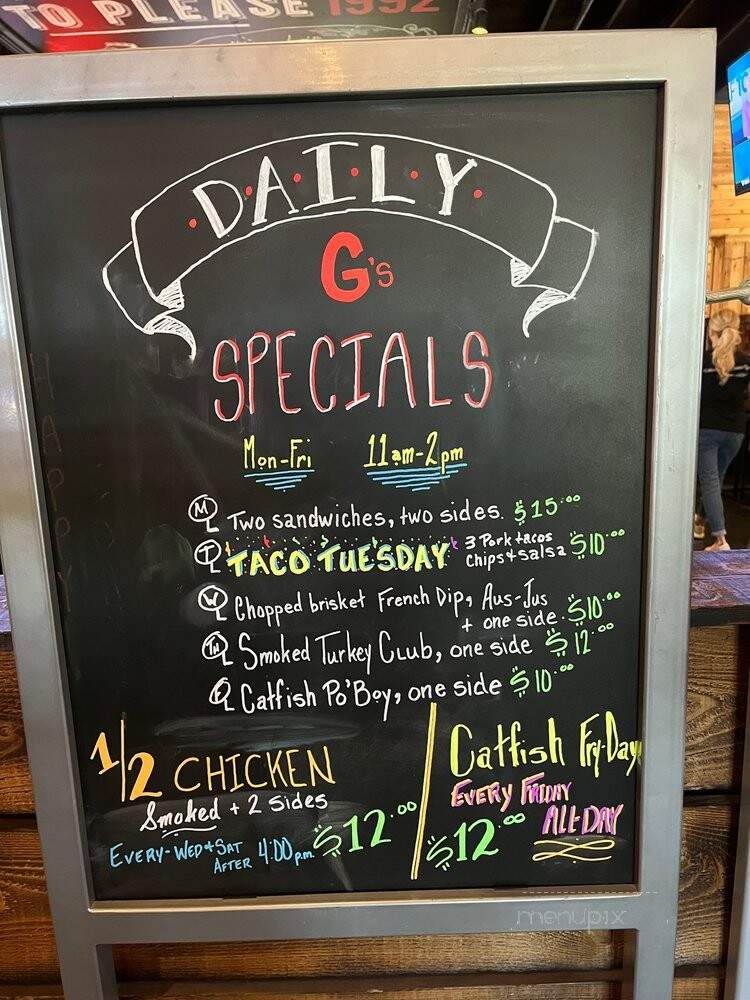 TO PLEASE 1992
D·A·I·L·Y
G's
SPECIALS
Mon-Fri 11am-2pm
M Two sandwiches, two sides. $15.00
T TACO TUESDAY 3 Pork tacos Chips + salsa $10.00
W Chopped brisket French Dip, Aus-Jus
+ one side. $10.00
TH Smoked Turkey Club, one side $12.00
F Catfish Po'Boy, one side $10.00
1/2 CHICKEN
Smoked + 2 sides
EVERY-WED+SAT
AFTER 4:00 p.m. $12.00
Catfish Fry-Day
EVERY FRIDAY
ALL-DAY
$12.00
HAPPY
menupix